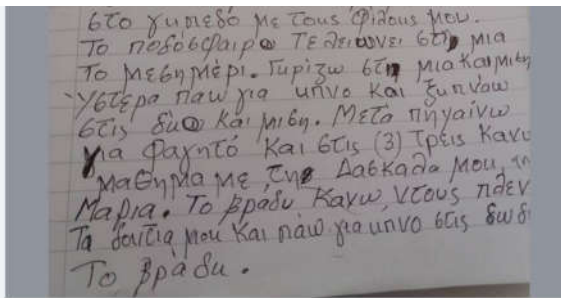 στο γηπεδό με τους φίλους μου.
Το ποδόσφαιρο τελειωνει στις μια
Το μεσημέρι. Γυρίζω στις μια και μιση
Υστερα παω για υπνο και ξυπνάω
στις δυο και μιση. Μετα πηγαίνω
για φαγητό και στις (3) τρεις κανω
μαθημα με τη Δασκαλα μου, τη
Μαρια. Το βράδυ κανω, ντους πλεν
Τα δοντια μου και πάω για υπνο στις δωδ
Το βράδυ.